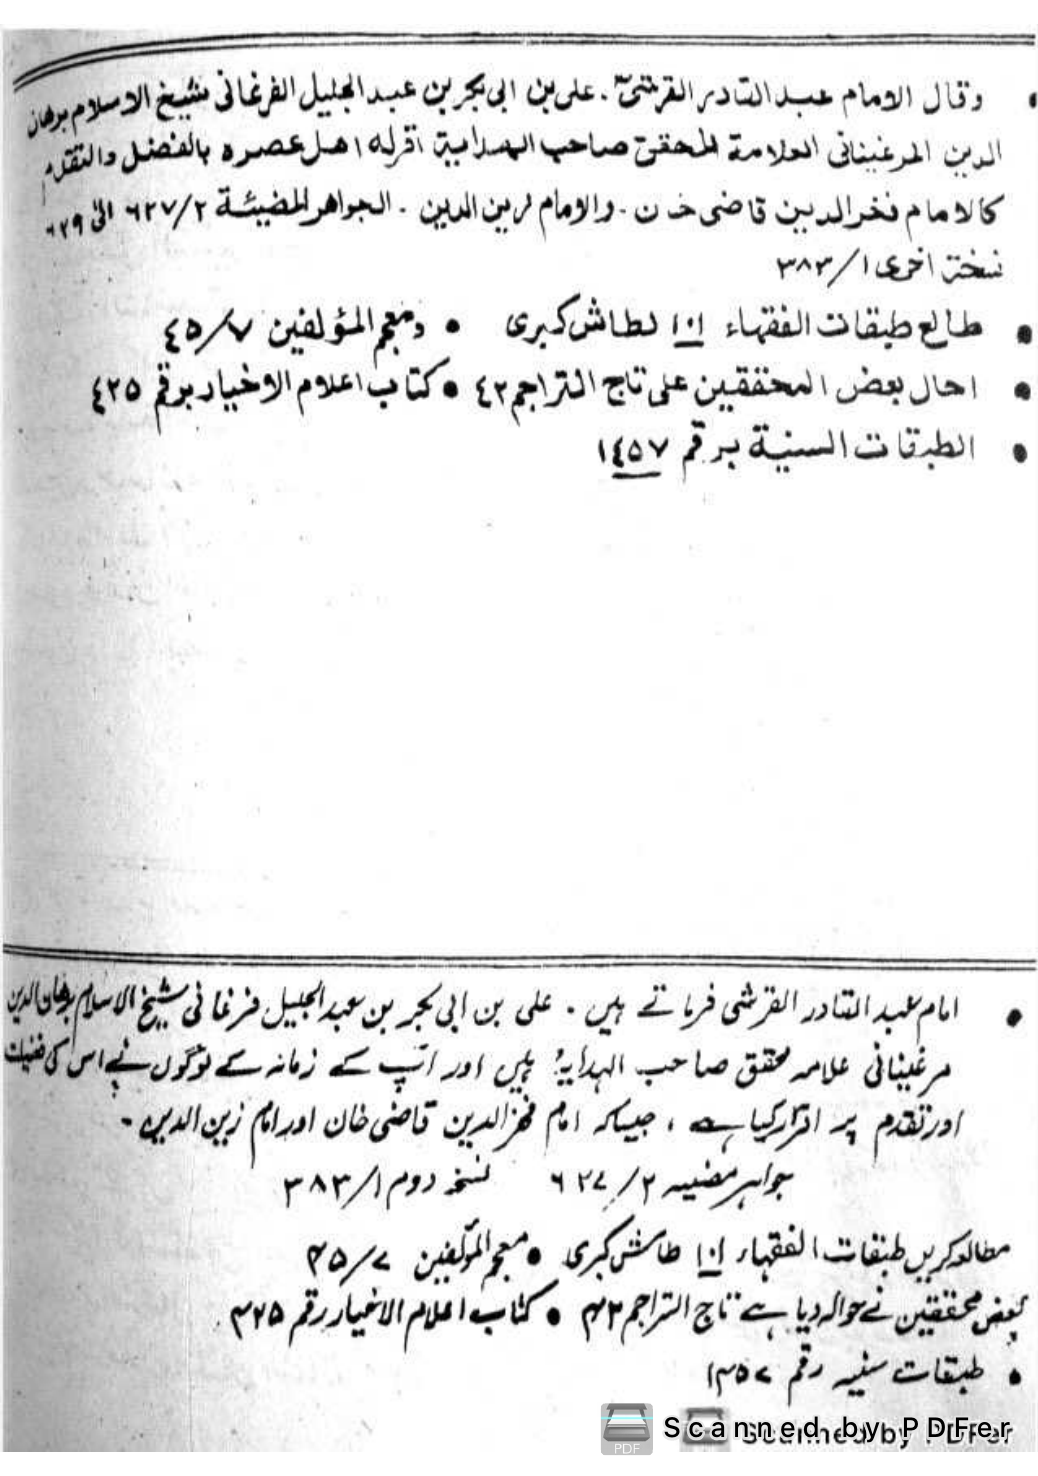 • وقال الامام عبد القادر القرشیؒ . علی بن ابی بکر بن عبد الجلیل الفرغانی شیخ الاسلام برهان
الدین المرغینانی العلامة المحقق صاحب الهدایة اقر له اهل عصره بالفضل والتقدم
کالامام فخر الدین قاضی خان . والامام زین الدین . الجواهر المضیئة ٢/٦٢٧ الی ٦٢٩
نسخة اخری ١/٣٨٣
• طالع طبقات الفقهاء ١٠١ لطاش کبری • ومعجم المؤلفین ٧/٤٥
• احال بعض المحققین علی تاج التراجم ٤٢ • کتاب اعلام الاخیار برقم ٤٢٥
• الطبقات السنیة برقم ١٤٥٧
• امام عبد القادر القرشی فرماتے ہیں . علی بن ابی بکر بن عبد الجلیل فرغانی شیخ الاسلام برهان الدین
مرغینانی علامہ محقق صاحب الهدایة ہیں اور آپ کے زمانہ کے لوگوں نے اس کی فضیلت
اور تقدم پر اقرار کیا ہے ، جیسا کہ امام فخر الدین قاضی خان اور امام زین الدین .
جواہر مضیہ ٢/٦٢٧ نسخہ دوم ١/٣٨٣
مطالعہ کریں طبقات الفقهاء ١٠١ طاش کبری • معجم المؤلفین ٧/٤٥
بعض محققین نے حوالہ دیا ہے تاج التراجم ٤٢ • کتاب اعلام الاخیار رقم ٤٢٥
• طبقات سنیہ رقم ١٤٥٧
Scanned by PDFer
Scanned by PDFer
PDF